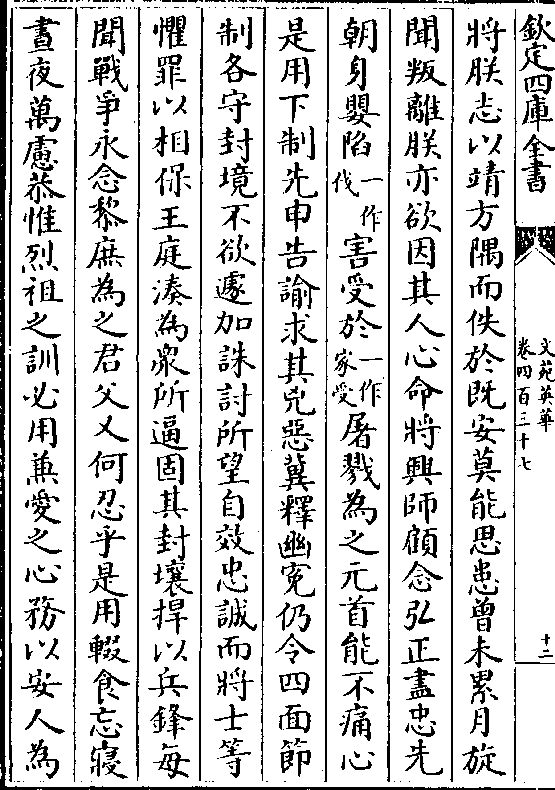 欽定四庫全書
文苑英華
卷四百三十七
十二
將朕志以靖方隅而佚於既安莫能思患曾未累月旋
聞叛離朕亦欲因其人心命將興師顧念弘正盡忠先
朝身嬰陷一作伐害受於一作家受屠戮為之元首能不痛心
是用下制先申告諭求其兇惡冀釋幽寃仍令四面節
制各守封境不欲遽加誅討所望自效忠誠而將士等
懼罪以相保王庭湊為衆所逼固其封壤捍以兵鋒每
聞戰爭永念黎庶為之君父又何忍乎是用輟食忘寢
晝夜萬慮恭惟烈祖之訓必用兼愛之心務以安人為